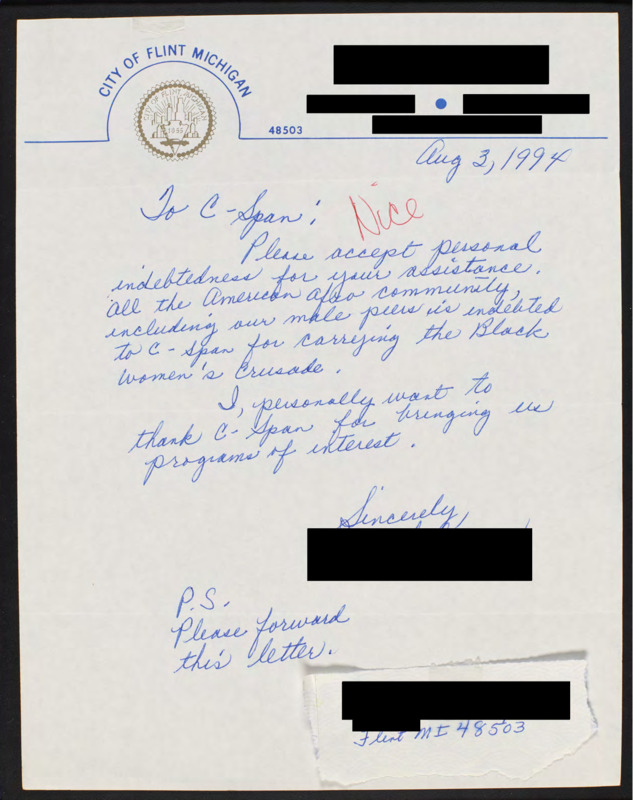 CITY OF FLINT MICHIGAN
1855
48503
Aug 3, 1994
To C-Span:
Nice
Please accept personal
indebtedness for your assistance.
All the American afro community,
including our male peers is indebted
to C-Span for carrying the Black
Women's Crusade.
I, personally want to
thank C-Span for bringing us
programs of interest.
Sincerely
P.S.
Please forward
this letter.
Flint MI 48503